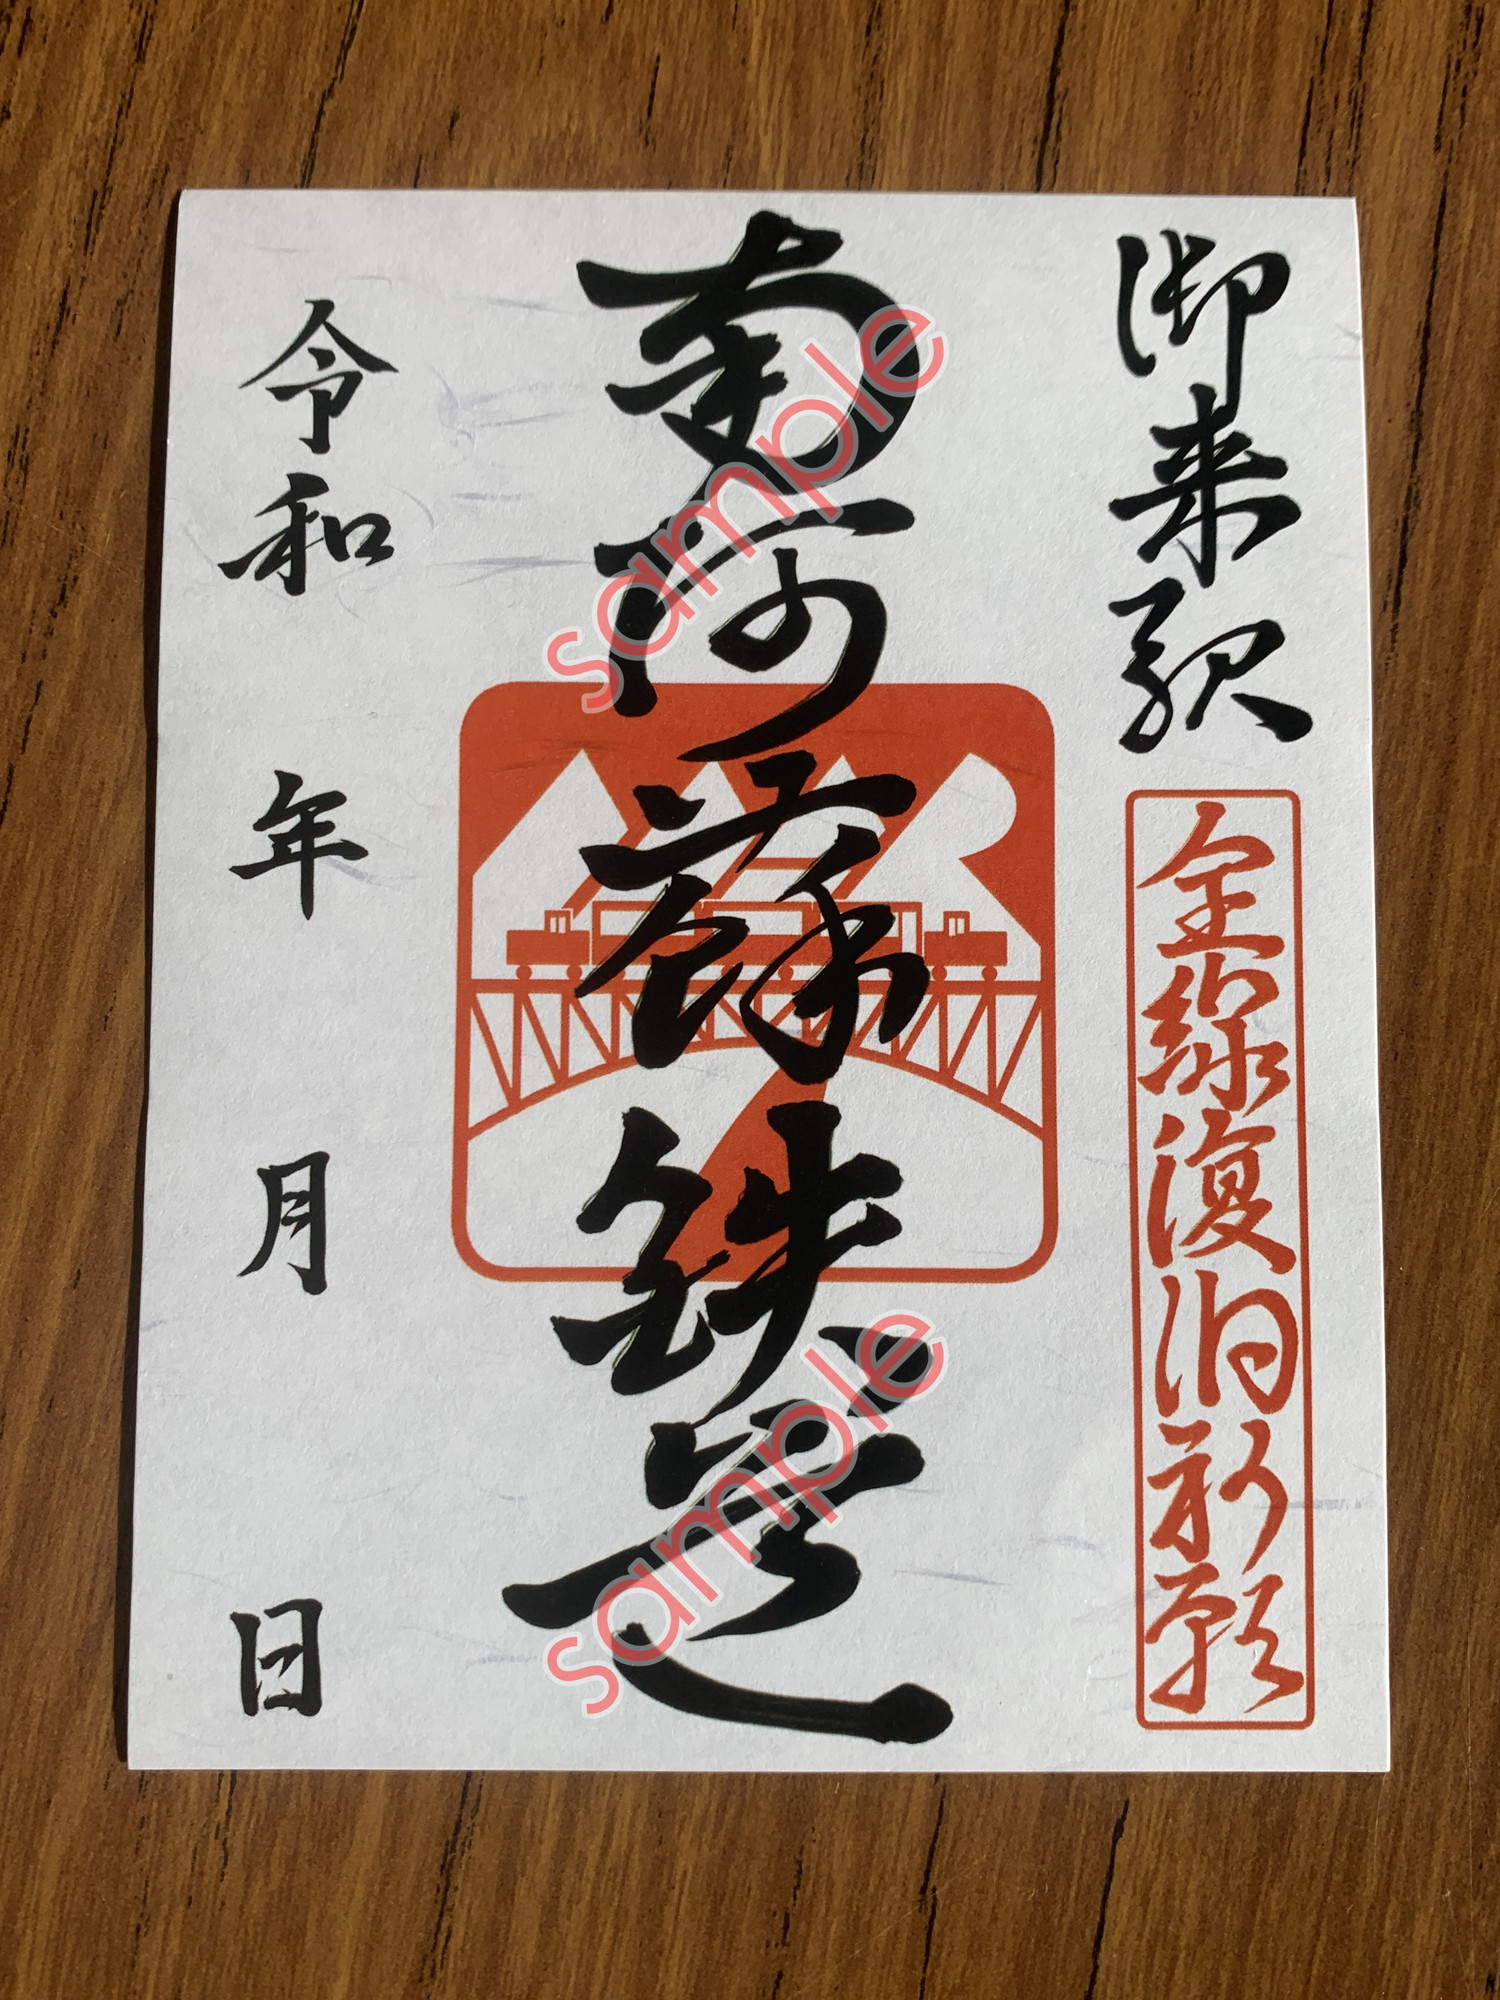 御来駅
全線復旧祈願
南阿蘇鉄道
令和 年 月 日
sample
sample